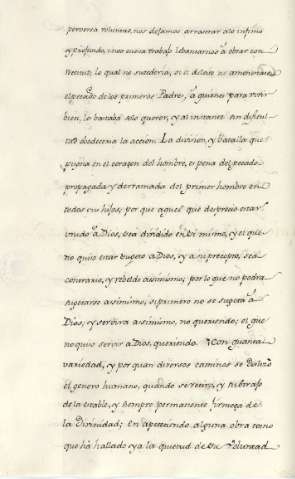 perversa voluntad, nos dejamos arrastrar a lo infimo
y profundo, nos cuesta trabajo lebantarnos a obrar con
rectitud, lo qual no sucederia, si el delito no
el pecado de los primeros Padres, a quienes para obrar
bien, les bastaba solo querer, y al instante sin dificul-
tad obedecia la accion. La division, y batalla que
pugna en el corazon del hombre, es pena del pecado
propagada y derramada del primer hombre en
todos sus hijos, por que aquel que desprecio estar
unido a Dios, sea dividido en si mismo, y el que
no quiso estar sugeto a Dios, y a su precepto, sea
contrario, y rebelde assimismo, por lo que no podra
sugetarse assimismo, si primero no se sugeta a
Dios, y servira assimismo, no queriendo; el que
no quiso servir a Dios, queriendo. Con quanta
variedad, y por quan diversos caminos se deslizo
el genero humano, quando se retiro, y
de la estable, y siempre permanente firmeza de
la Divinidad; En apeteciendo alguna obra
que ha hallado ya la quietud de su Voluntad